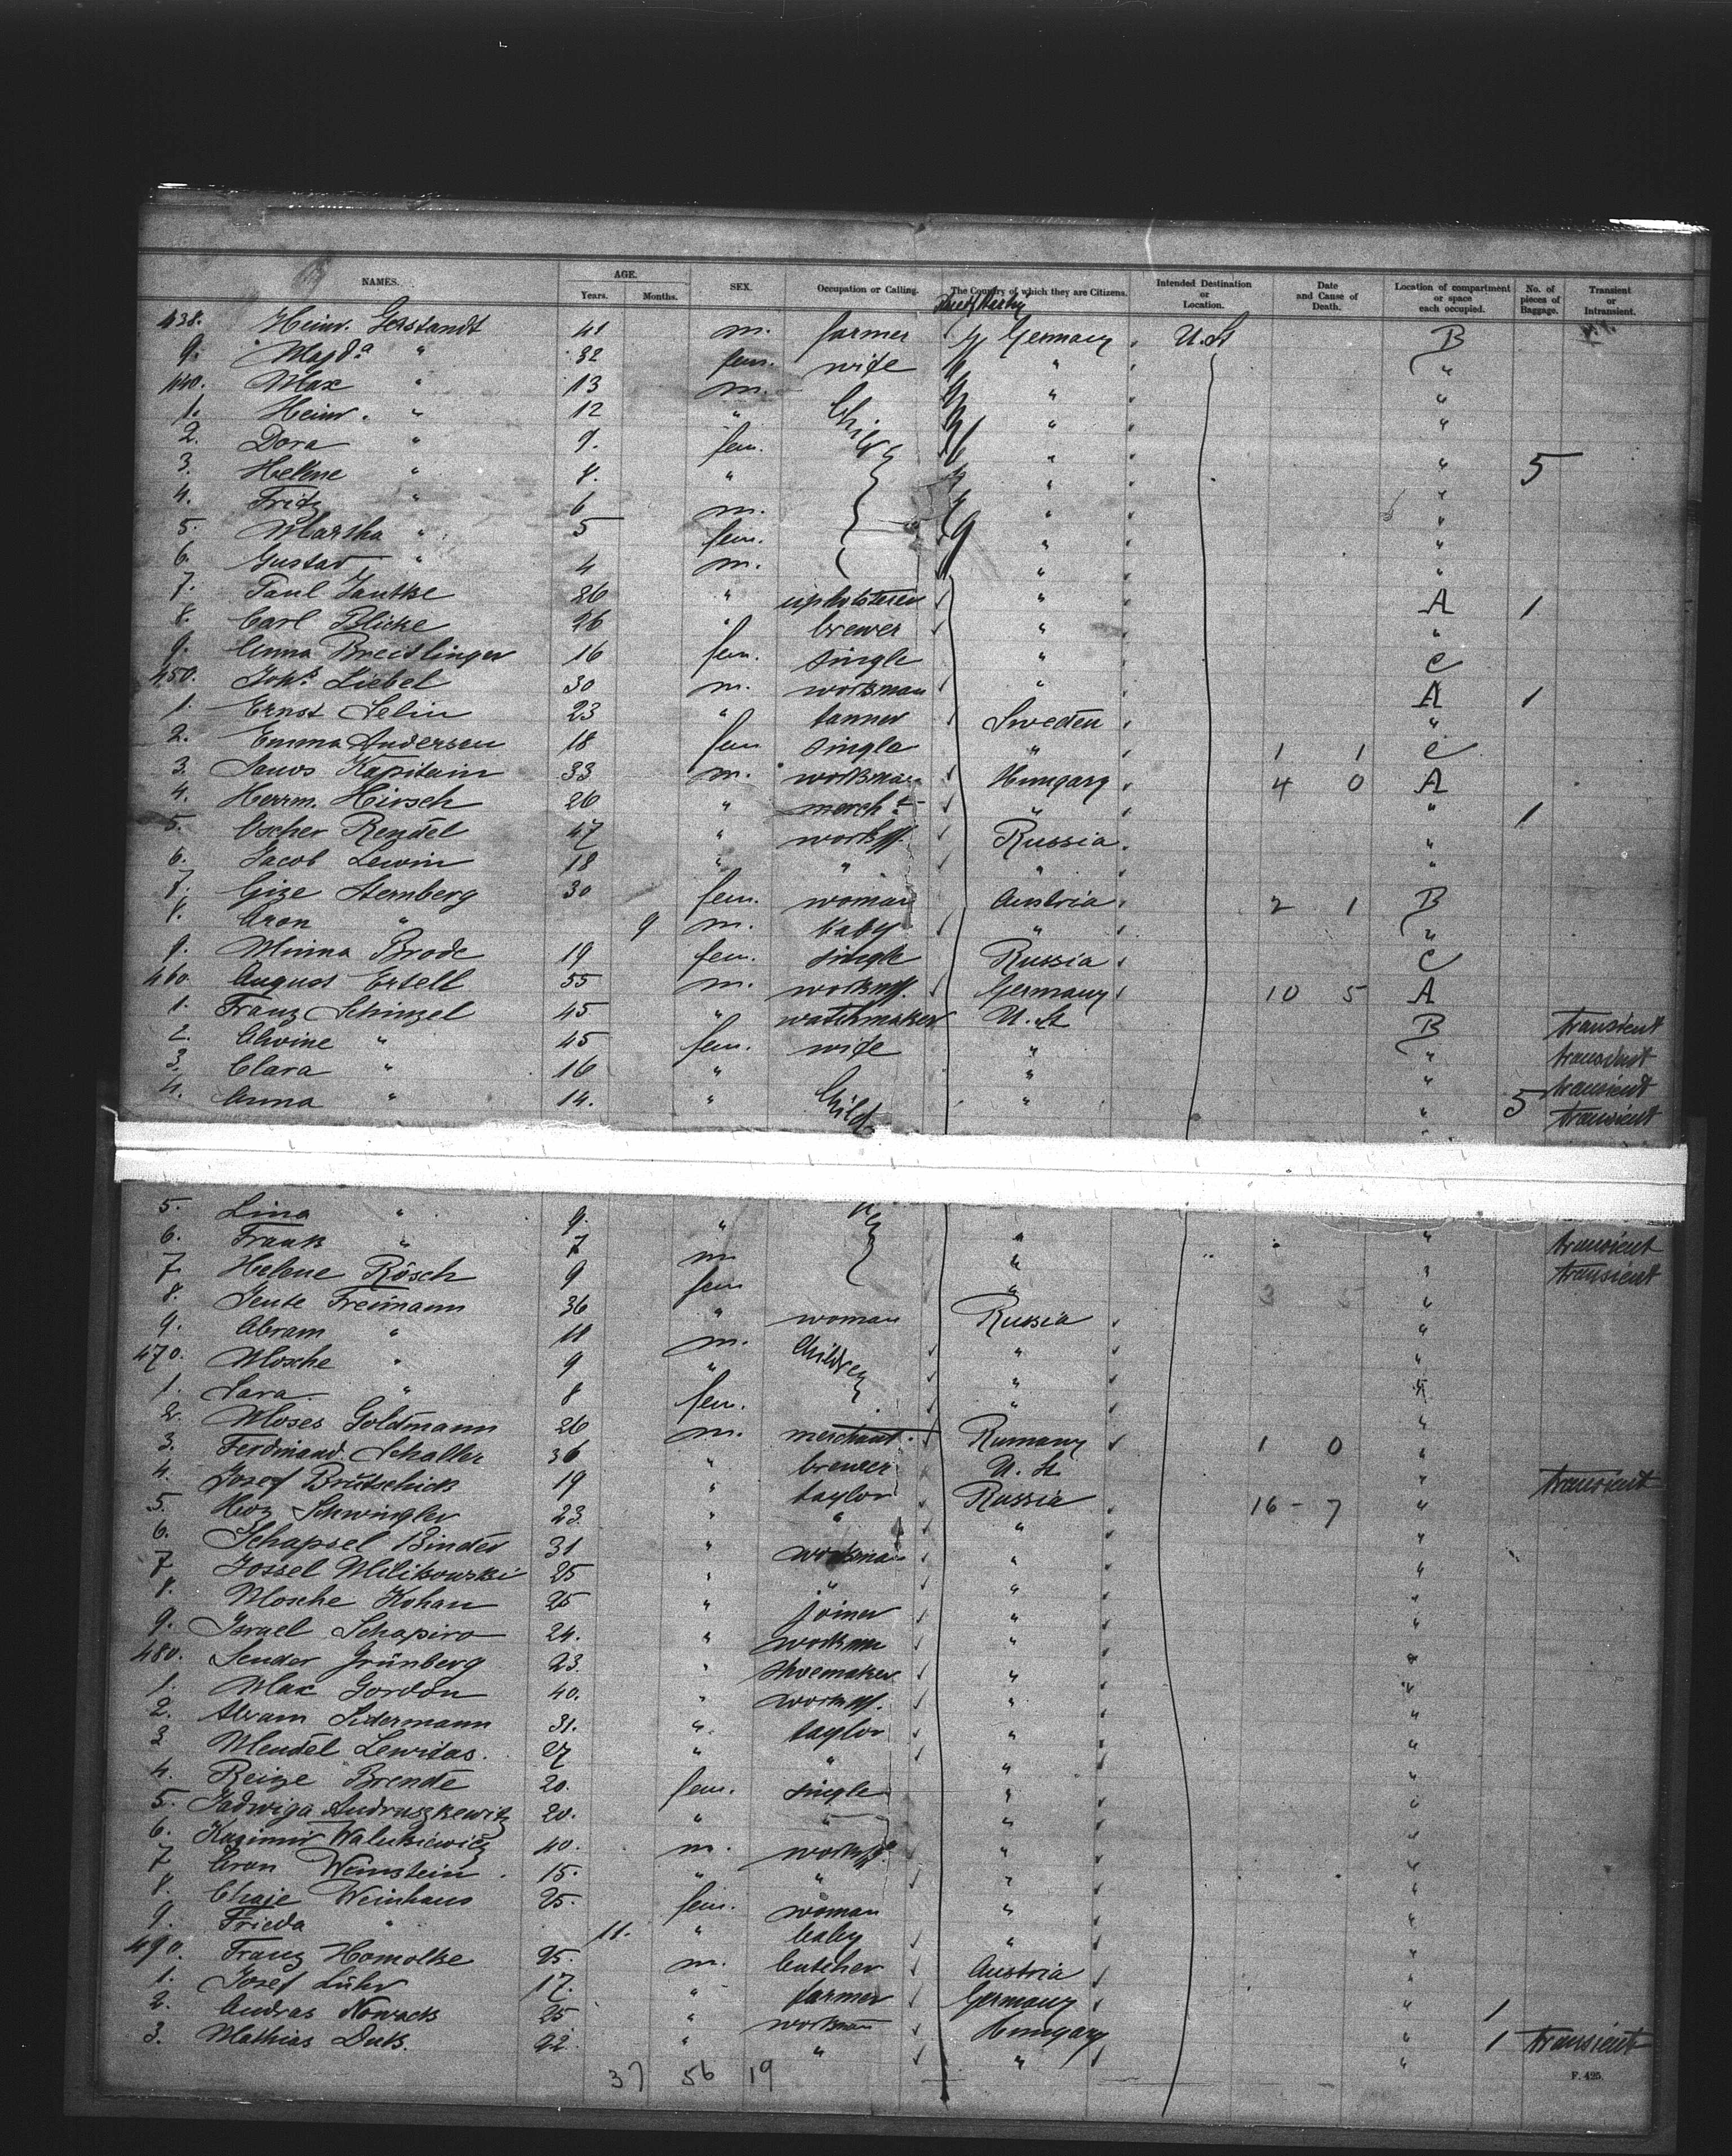 NAMES. AGE. Years. Months. SEX. Occupation or Calling. The Country of which they are Citizens. Intended Destination or Location. Date and Cause of Death. Location of compartment or space each occupied. No. of pieces of Baggage. Transient or Intransient.
438. Heinr. Gerstandt 41 m. farmer Germany U. St B
9. Magd.a " 32 fem. wife " "
440. Max " 13 m. " "
1. Heinr. " 12 " " "
2. Dora " 9. fem. " "
3. Helene " 8. " " " 5
4. Fritz " 6 m. " "
5. Martha " 5 fem. " "
6. Gustav " 4 m. " "
7. Paul Jantke 26 " upholsterer " A 1
8. Carl Blicke 26 " brewer " "
9. Anna Breitlinger 16 fem. single " C
450. Joh. Liebel 30 m. workman " A 1
1. Ernst Selin 23 " tanner Sweden "
2. Emma Andersen 18 fem single " 1 1 C
3. Janos Kapitain 33 m. workman Hungary 4 0 A
4. Herrm. Hirsch 26 " merch.t " " 1
5. Ascher Rendel 47 " Russia "
6. Jacob Lewin 18 " " " "
7. Gize Sternberg 30 fem. woman Austria 2 1 B
8. Aron " 9 m. baby " "
9. Minna Brode 19 fem. single Russia C
460. August Ertelt 55 m. Germany 10 5 A
1. Franz Schinzel 45 " watchmaker U. St B transient
2. Alwine " 45 fem. wife " " transient
3. Clara " 16 " " " transient
4. Anna " 14. " Child " " 5 transient
5. Lina " 9. "
6. Frank " 7 m " " transient
7 Helene Rösch 9 fem " " transient
8. Jente Freimann 36 " woman Russia "
9. Abram " 11 m. Children " "
470. Mosche " 9 " " "
1. Sara " 8 fem. " "
2. Moses Goldmann 26 m. merchant. Rumany 1 0 "
3. Ferdinand Schaller 36 " brewer U. St. " transient
4. Josef Brutschick 19 " taylor Russia 16 - 7 "
5. Schwingler 23. " " " "
6. Schapsel Binder 31 " workman " "
7 Jossel Milikowski 25 " " " "
8. Mosche Kohan 25 " joiner " "
9. Israel Schapiro 24. " workman " "
480. Sender Grünberg 23. " shoemaker " "
1. Max Gordon 40. " " "
2. Abram Sidermann 31. " taylor " "
3 Mendel Lewidas. 27 " " " "
4. Reize Brende 20. fem. single " "
5. Jadwiga Andruszkewitz 20. " " " "
6. Kazimir Walukiewicz 40. m. " "
7 Aron Weinstein 15. " " " "
8. Chaje Weinhaus 25. fem. woman " "
9. Frieda " 11. " baby " "
490. Franz Homolke 25. m. butcher Austria "
1. Josef Lühr 17. " farmer Germany " 1
2. Andras Nowack 25. " workman Hungary " 1 transient
3. Mathias Duk. 22. " " " "
37 56 19
F. 425.